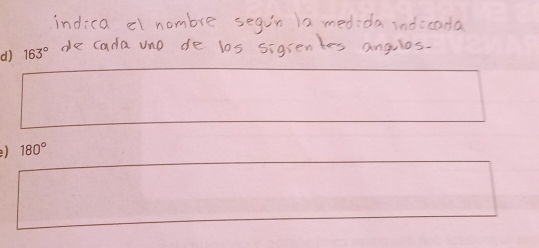 indica el nombre según la medida indicada
de cada uno de los sigientes angulos.
d) 163°
e) 180°